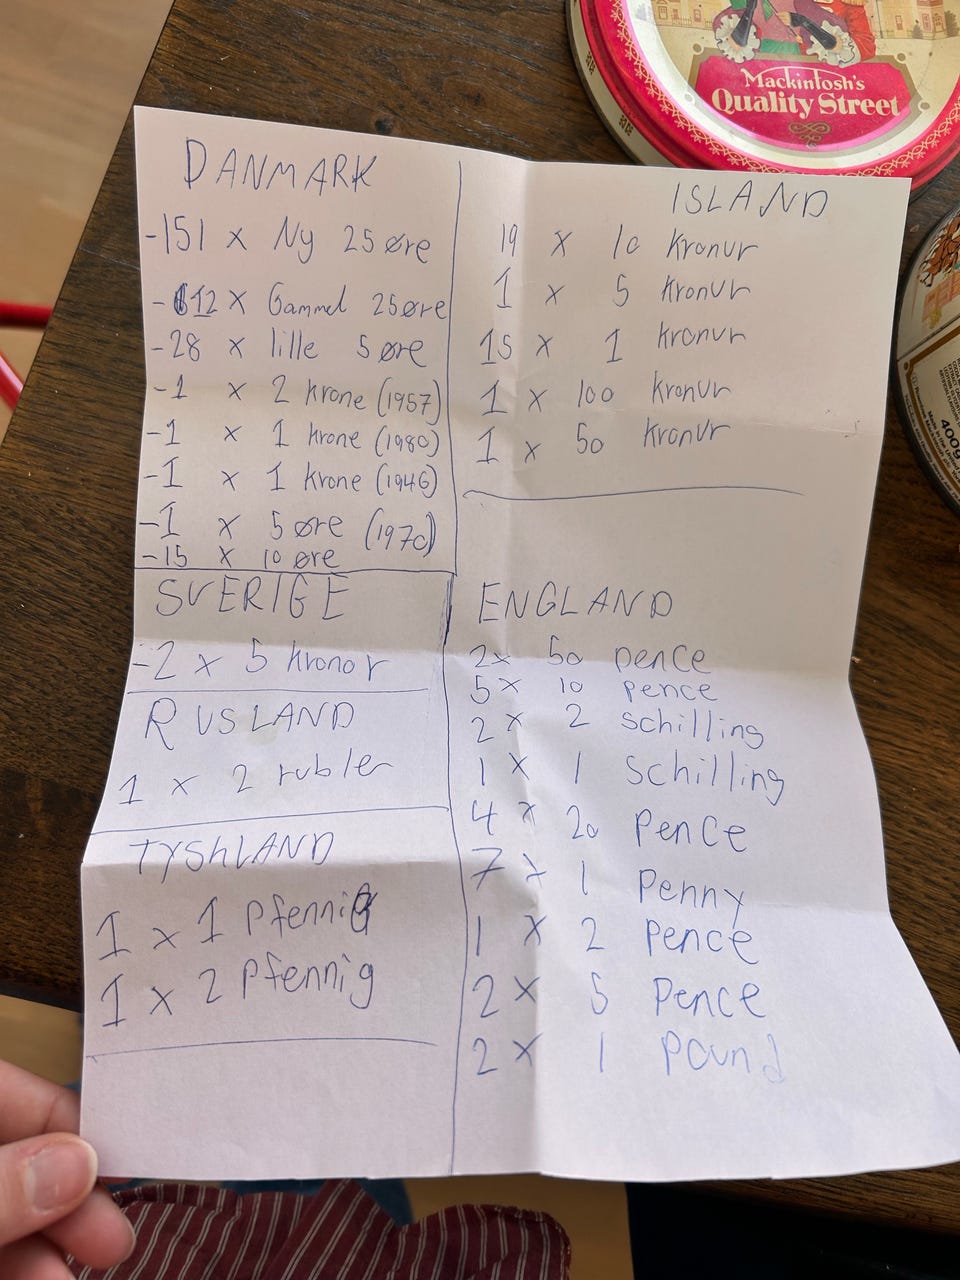 Mackintosh's
Quality Street
DANMARK
-151 x Ny 25 øre
-112 x Gammel 25øre
-28 x lille 5 øre
-1 x 2 krone (1957)
-1 x 1 krone (1980)
-1 x 1 krone (1946)
-1 x 5 øre (1970)
-15 x 10 øre
SVERIGE
-2 x 5 kronor
RUSLAND
1 x 2 rubler
TYSKLAND
1 x 1 Pfennig
1 x 2 Pfennig
ISLAND
19 x 10 Kronur
1 x 5 Kronur
15 x 1 kronur
1 x 100 kronur
1 x 50 kronur
ENGLAND
2x 50 pence
5x 10 pence
2 x 2 schilling
1 x 1 schilling
4 x 20 Pence
7 x 1 Penny
1 x 2 Pence
2 x 5 Pence
2 x 1 pound
400g